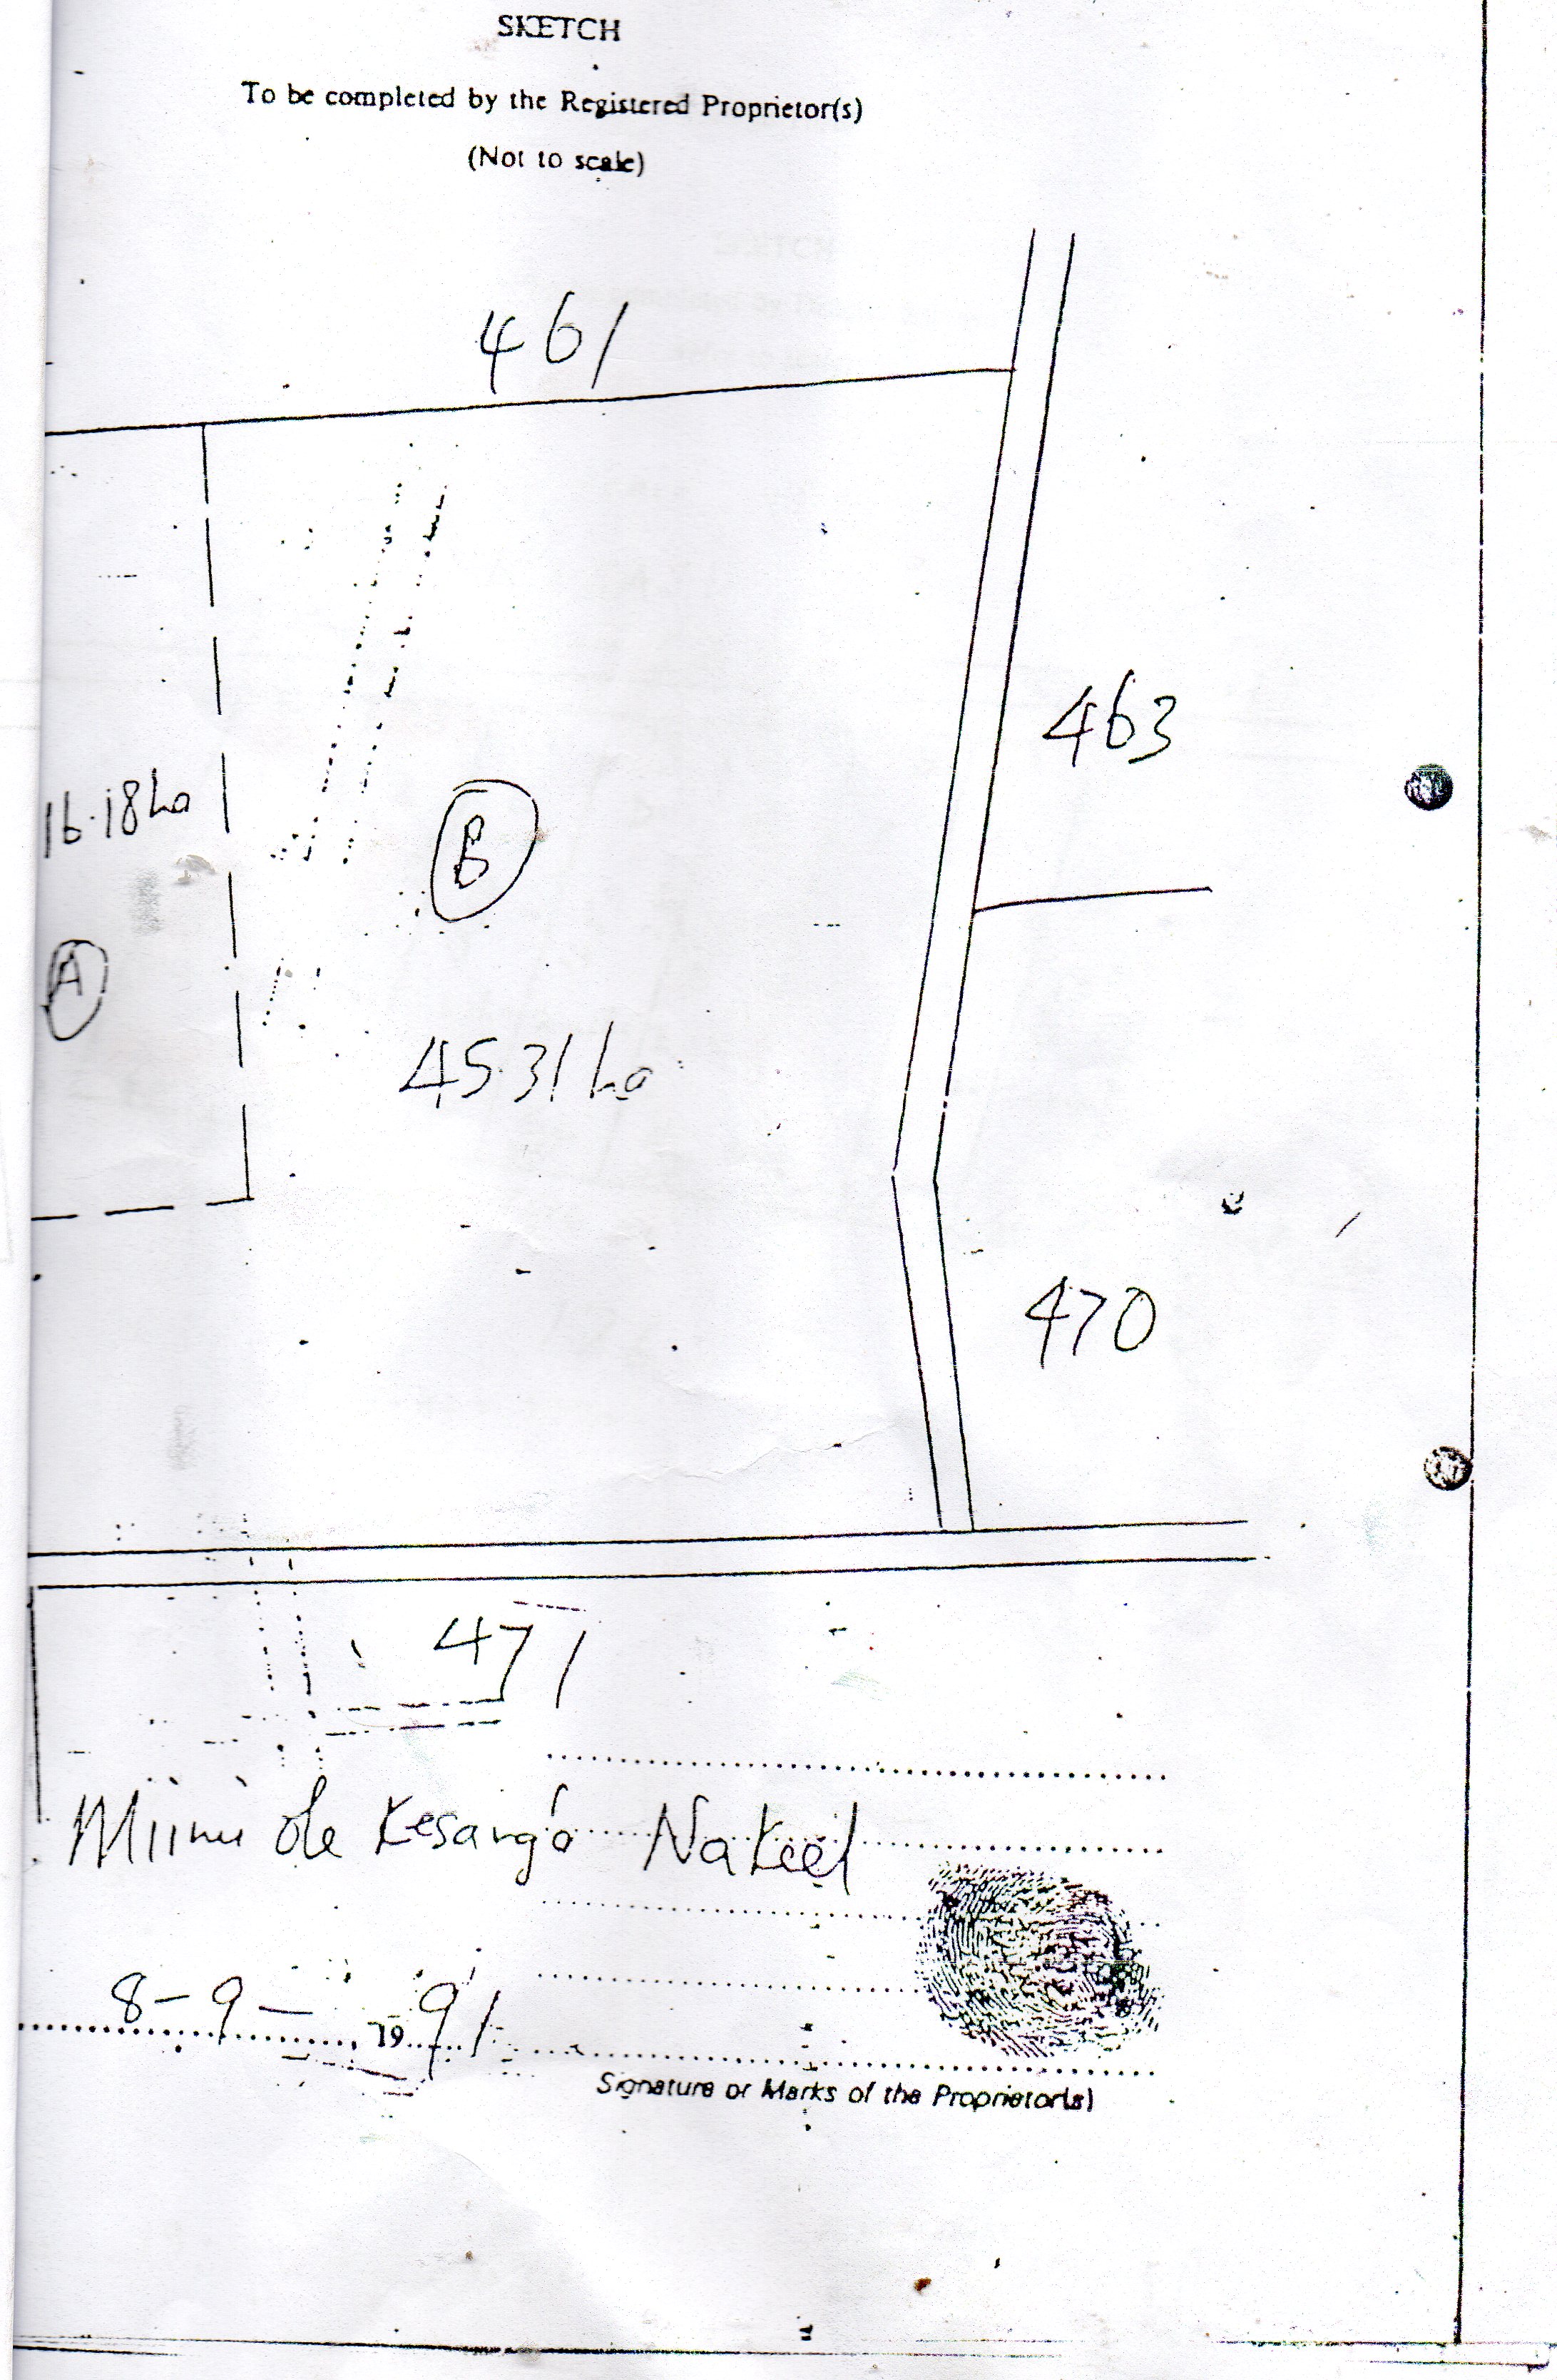 SKETCH
To be completed by the Registered Proprietor(s)
(Not to scale)
461
463
16.18ha
B
A
45.31 ha
470
471
ole Kesargo Nakeel
8-9- 19 91
Signature or Marks of the Proprietor(s)